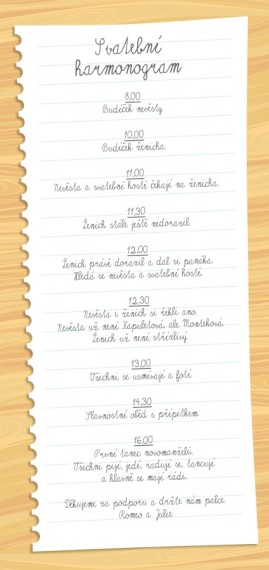 Svatební
harmonogram
8.00
Budíček nevěsty.
10.00
Budíček ženicha.
11.00
Nevěsta a svatební hosté čekají na ženicha.
11.30
Ženich stále ještě nedorazil.
12.00
Ženich právě dorazil a dal si panáka.
Hledá se nevěsta a svatební hosté.
12.30
Nevěsta i ženich si řekli ano.
Nevěsta už není Kapuletová, ale Monteková.
Ženich už není střízlivý.
13.00
Všichni se usmívají a fotí.
14.30
Slavnostní oběd s přípitkem.
16.00
První tanec novomanželů.
Všichni pijí, jedí, radují se, tancují
a hlavně se mají rádi.
Děkujeme za podporu a držte nám palce.
Romeo a Julie